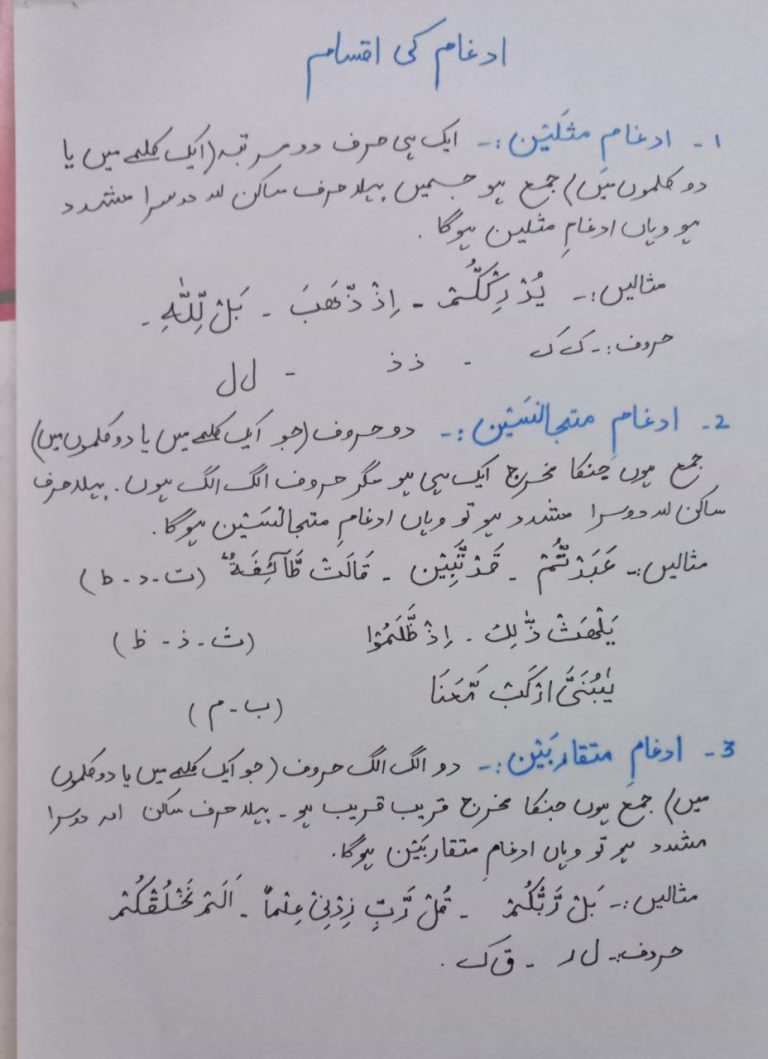 ادغام کی اقسام
1۔ ادغامِ مثلَین :۔ ایک ہی حرف دو مرتبہ (ایک کلمے میں یا
دو کلموں میں) جمع ہو جسمیں پہلا حرف ساکن اور دوسرا مشدد
ہو وہاں ادغامِ مثلین ہوگا ۔
مثالیں :۔ یُدْرِکْکُّمْ ۔ اِذْ ذَّھَبَ ۔ بَلْ لِّلّٰہِ ۔
حروف :۔ ک ک ۔ ذ ذ ۔ ل ل
2۔ ادغامِ متجانسَین :۔ دو حروف (جو ایک کلمے میں یا دو کلموں میں)
جمع ہوں جنکا مخرج ایک ہی ہو مگر حروف الگ الگ ہوں ۔ پہلا حرف
ساکن اور دوسرا مشدد ہو تو وہاں ادغامِ متجانسَین ہوگا ۔
مثالیں :۔ عَبَدْتُّمْ ۔ قَدْ تَّبَیَّن ۔ قَالَتْ طَّآئِفَةٌ (ت ۔ د ۔ ط)
یَلْھَثْ ذّٰلِکَ ۔ اِذْ ظَّلَمُوْا (ث ۔ ذ ۔ ظ)
یٰبُنَیَّ ارْکَبْ مَّعَنَا (ب ۔ م)
3۔ ادغامِ متقاربَین :۔ دو الگ الگ حروف (جو ایک کلمے میں یا دو کلموں
میں) جمع ہوں جنکا مخرج قریب قریب ہو ۔ پہلا حرف ساکن اور دوسرا
مشدد ہو تو وہاں ادغامِ متقاربَین ہوگا ۔
مثالیں :۔ بَلْ رَّبُّکُمْ ۔ قُلْ رَّبِّ زِدْنِیْ عِلْماً ۔ اَلَمْ نَخْلُقْکُمْ
حروف :۔ ل ر ۔ ق ک ۔